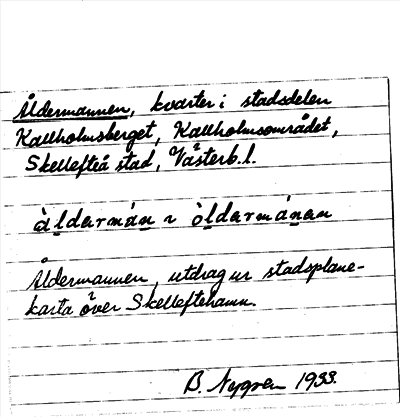 Åldermannen, kvarter i stadsdelen
Kallholmsberget, Kallholmsområdet,
Skellefteå stad, Västerb. l.
àldarmán ~ òldarmánan
Åldermannen, utdrag ur stadsplane-
karta över Skelleftehamn.
B. Nygren 1933.